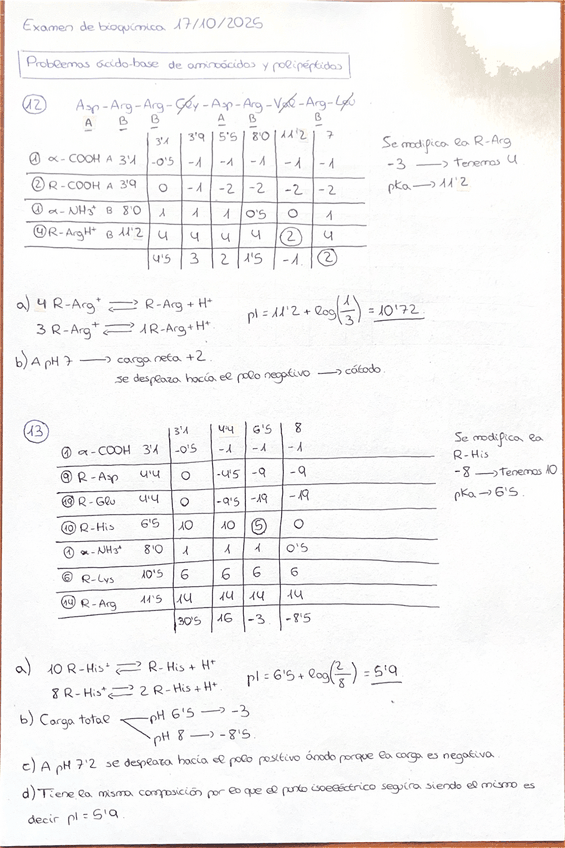 Examen de bioquímica 17/10/2025
Problemas ácido-base de aminoácidos y polipéptidos
12 Asp-Arg-Arg-Gly-Asp-Arg-Val-Arg-Leu
A B B A B B
3'1 3'9 5'5 8'0 11'2 7
1 α-COOH A 3'1 -0'5 -1 -1 -1 -1 -1
2 R-COOH A 3'9 0 -1 -2 -2 -2 -2
1 α-NH3+ B 8'0 1 1 1 0'5 0 1
4 R-ArgH+ B 11'2 4 4 4 4 2 4
4'5 3 2 1'5 -1 2
Se modifica la R-Arg
-3 → tenemos 4
pKa → 11'2
a) 4 R-Arg+ ⇌ R-Arg + H+
3 R-Arg+ ⇌ 1R-Arg+H+
pI = 11'2 + log(1/3) = 10'72
b) A pH 7 → carga neta +2.
se desplaza hacía el polo negativo → cátodo.
13
3'1 4'4 6'5 8
1 α-COOH 3'1 -0'5 -1 -1 -1
9 R-Asp 4'4 0 -4'5 -9 -9
19 R-Glu 4'4 0 -9'5 -19 -19
10 R-His 6'5 10 10 5 0
1 α-NH3+ 8'0 1 1 1 0'5
6 R-Lys 10'5 6 6 6 6
14 R-Arg 11'5 14 14 14 14
30'5 16 -3 -8'5
Se modifica la
R-His
-8 → tenemos 10
pKa → 6'5
a) 10 R-His+ ⇌ R-His + H+
8 R-His+ ⇌ 2 R-His + H+
pI = 6'5 + log(2/8) = 5'9
b) Carga total pH 6'5 → -3
pH 8 → -8'5.
c) A pH 7'2 se desplaza hacía el polo positivo ánodo porque la carga es negativa.
d) Tiene la misma composición por lo que el punto isoeléctrico seguira siendo el mismo es
decir pI = 5'9.